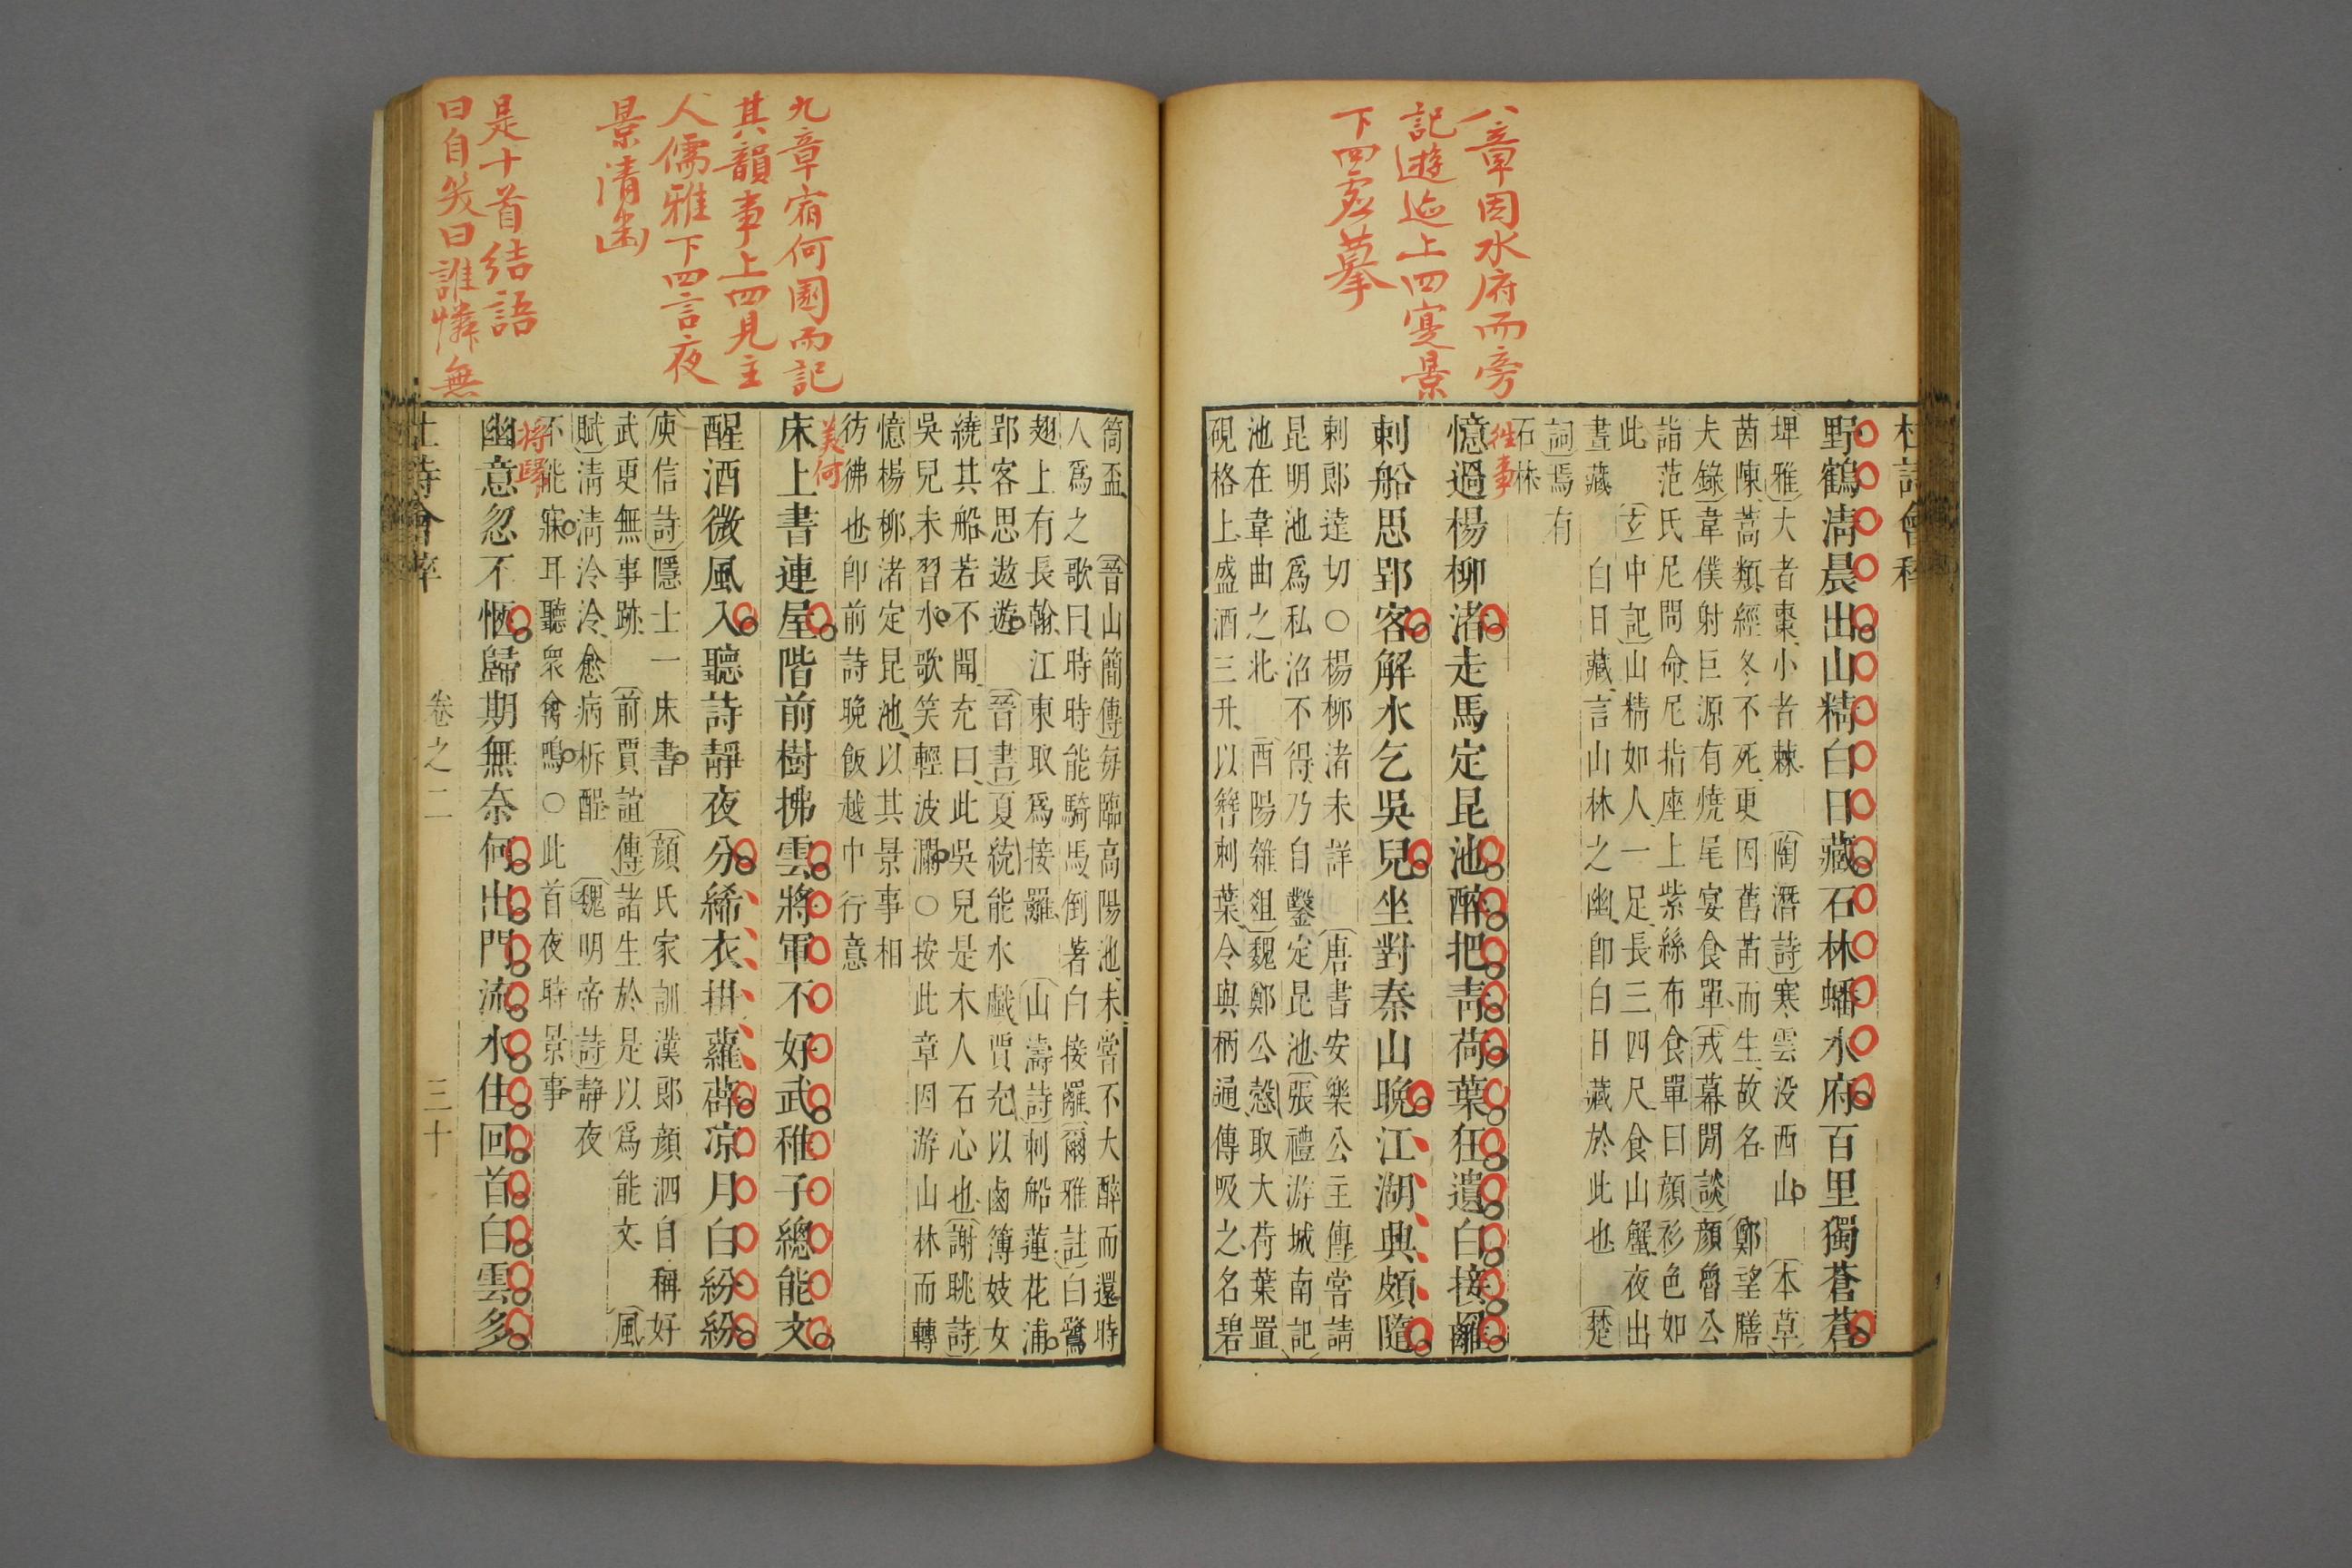 八章因水府而旁
記遊迹上四寔景
下四虛摹
杜詩會稡
野鶴清晨出山精白日藏石林蟠水府百里獨蒼蒼
埤雅大者棗小者棘 陶潛詩寒雲没西山 本草
茵陳蒿類經冬不死更因舊苗而生故名 鄭望膳
夫錄韋僕射巨源有燒尾宴食單戎幕閒談顏魯公
詣范氏尼問命尼指座上紫絲布食單曰顏衫色如
此 玄中記山精如人一足長三四尺食山蟹夜出
晝藏 白日藏言山林之幽卽白日藏於此也 楚
詞焉有
石林
往事
憶過楊柳渚走馬定昆池醉把青荷葉狂遺白接䍦
刺船思郢客解水乞吳兒坐對秦山晚江湖興頗隨
刺郎達切○楊柳渚未詳 唐書安樂公主傳嘗請
昆明池爲私沼不得乃自鑿定昆池張禮游城南記
池在韋曲之北 酉陽雜俎魏鄭公慤取大荷葉置
硯格上盛酒三升以簪刺葉令與柄通傳吸之名碧
九章宿何園而記
其韻事上四見主
人儒雅下四言夜
景清幽
是十首結語
曰自笑曰誰憐無
筒盃 晉山簡傳每臨高陽池未嘗不大醉而還時
人爲之歌曰時時能騎馬倒著白接䍦爾雅註白鷺
翅上有長翰江東取爲接䍦 山濤詩刺船蓮花浦
郢客思遨遊 晉書夏統能水戲賈充以鹵簿妓女
繞其船若不聞充曰此吳兒是木人石心也謝眺詩
吳兒未習水歌笑輕波瀾○按此章因游山林而轉
憶楊柳渚定昆池以其景事相
彷彿也卽前詩晚飯越中行意
美何
床上書連屋階前樹拂雲將軍不好武稚子總能文
醒酒微風入聽詩靜夜分絺衣掛蘿薜凉月白紛紛
庾信詩隱士一床書 顏氏家訓漢郎顏泗自稱好
武更無事跡 前賈誼傳諸生於是以爲能文 風
賦清清泠泠愈病析酲 魏明帝詩靜夜
不能寐耳聽衆禽鳴○此首夜時景事
將歸
幽意忽不愜歸期無奈何出門流水住回首白雲多
卷之二 三十